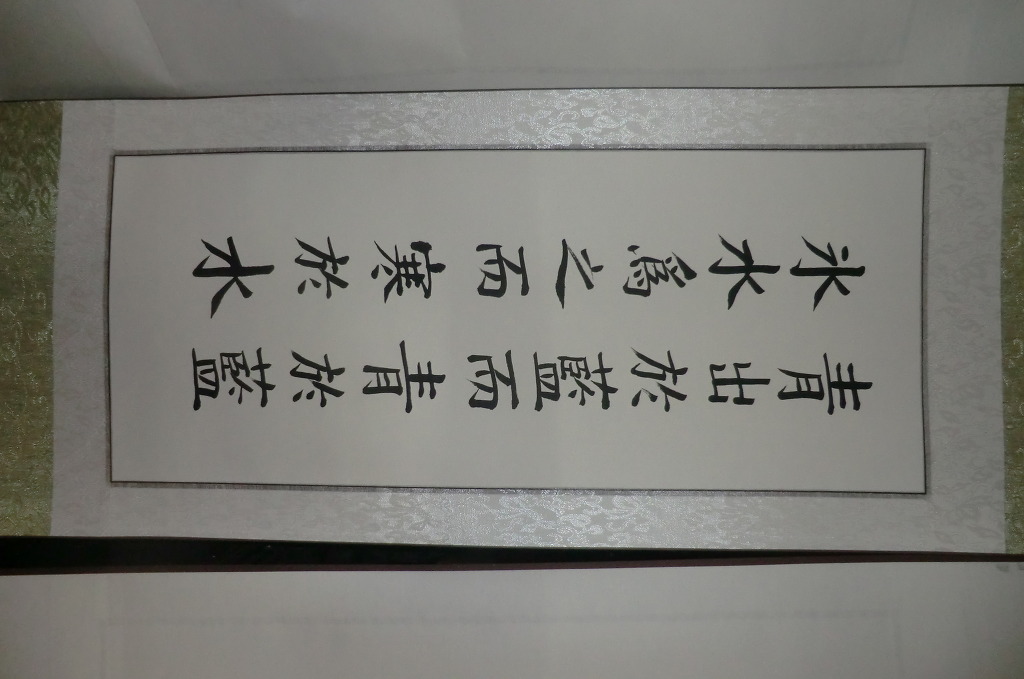 青出於藍而青於藍
氷水爲之而寒於水